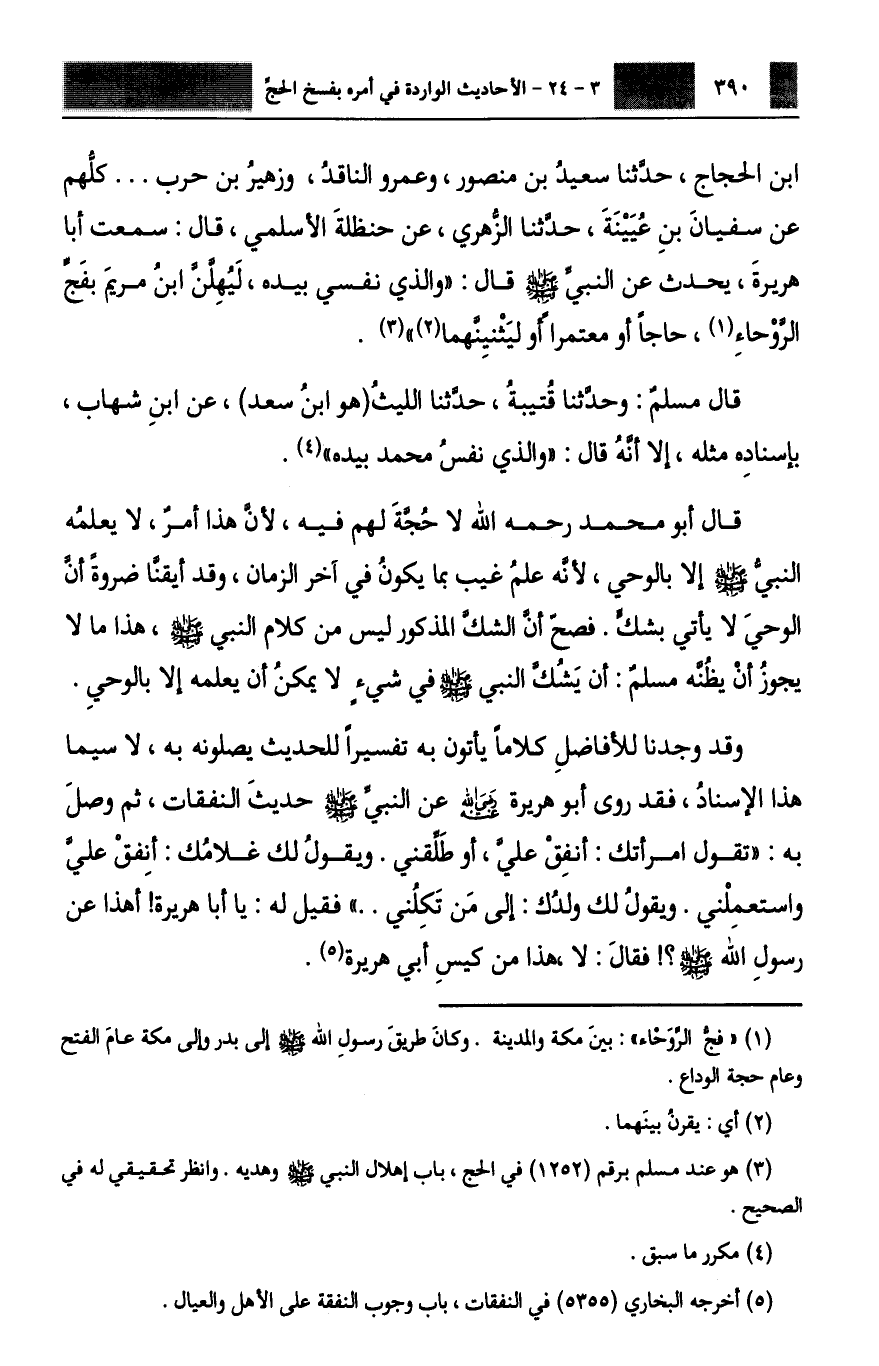 ٣٩٠ ٣ - ٢٤ - الأحاديث الواردة في أمره بفسخ الحجّ
ابن الحجاج ، حدَّثنا سعيدُ بن منصور ، وعمرو الناقدُ ، وزهيرُ بن حرب ... كلُّهم
عن سفيانَ بنِ عُيَيْنَةَ ، حدَّثنا الزُّهري ، عن حنظلةَ الأسلمي ، قال : سمعت أبا
هريرةَ ، يحدث عن النبيِّ ﷺ قال : «والذي نفسي بيده ، لَيُهِلَّنَّ ابنُ مريمَ بفَجِّ
الرَّوْحاءِ(١) ، حاجاً أو معتمراً أو ليَثْنينَّهما(٢)»(٣) .
قال مسلمٌ : وحدَّثنا قُتيبةُ ، حدَّثنا الليثُ(هو ابنُ سعد) ، عن ابنِ شهاب ،
بإسنادِه مثله ، إلا أنَّهُ قال : «والذي نفسُ محمد بيده»(٤) .
قال أبو محمد رحمه الله لا حُجَّةَ لهم فيه ، لأنَّ هذا أمرٌ ، لا يعلمُه
النبيُّ ﷺ إلا بالوحي ، لأنَّه علمُ غيب بما يكونُ في آخر الزمان ، وقد أيقنَّا ضروةً أنَّ
الوحيَ لا يأتي بشكٍّ . فصحّ أنَّ الشكَّ المذكور ليس من كلام النبي ﷺ ، هذا ما لا
يجوزُ أنْ يظُنَّه مسلمٌ : أن يَشُكَّ النبي ﷺ في شيءٍ لا يمكنُ أن يعلمه إلا بالوحيِ .
وقد وجدنا للأفاضلِ كلاماً يأتون به تفسيراً للحديث يصلونه به ، لا سيما
هذا الإسنادُ ، فقد روى أبو هريرة رضي الله عنه عن النبيِّ ﷺ حديثَ النفقات ، ثم وصلَ
به : «تقول امرأتك : أنفِقْ عليَّ ، أو طَلِّقني . ويقولُ لك غلامُك : أنفِقْ عليَّ
واستعمِلْني . ويقولُ لك ولدُك : إلى مَن تَكِلُني . .» فقيل له : يا أبا هريرة! أهذا عن
رسولِ الله ﷺ ؟! فقالَ : لا ،هذا من كيسِ أبي هريرة(٥) .
(١) « فجُّ الرَّوَحْاء» : بينَ مكة والمدينة . وكانَ طريقَ رسولِ الله ﷺ إلى بدر وإلى مكة عامَ الفتح
وعام حجة الوداع .
(٢) أي : يقرنُ بينَهما .
(٣) هو عند مسلم برقم (١٢٥٢) في الحج ، باب إهلال النبي ﷺ وهديه . وانظر تحقيقي له في
الصحيح .
(٤) مكرر ما سبق .
(٥) أخرجه البخاري (٥٣٥٥) في النفقات ، باب وجوب النفقة على الأهل والعيال .